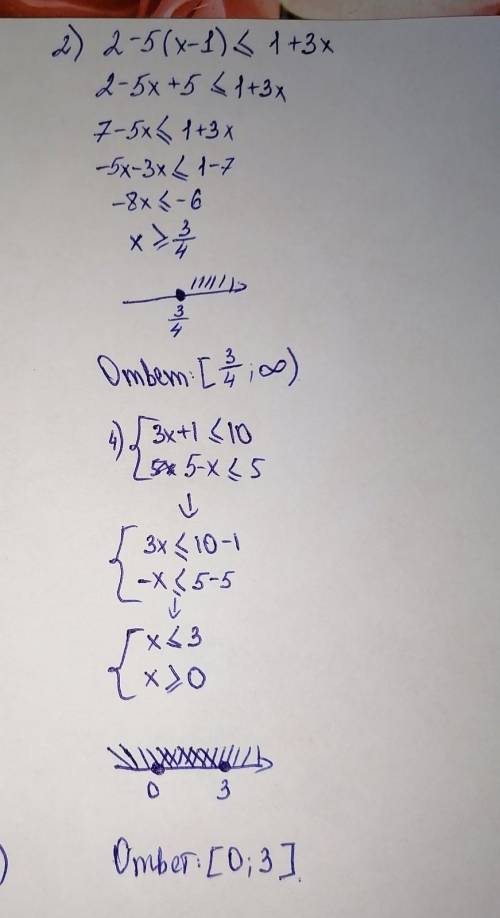 2) 2-5(x-1) ≤ 1+3x
2-5x+5 ≤ 1+3x
7-5x ≤ 1+3x
-5x-3x ≤ 1-7
-8x ≤ -6
x ≥ 3/4
3/4
Ответ: [3/4; ∞)
4) { 3x+1 ≤ 10
5-x ≤ 5
↓
{ 3x ≤ 10-1
-x ≤ 5-5
↓
{ x ≤ 3
x ≥ 0
0 3
Ответ: [0; 3].
)